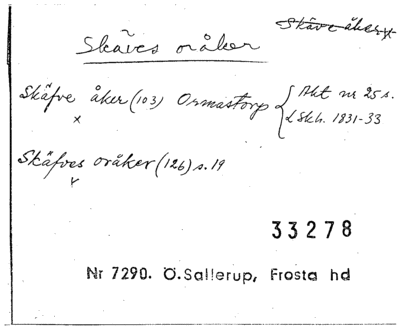 Skäve åker
Skäves oråker
Skäfve åker (103) Ormastorp { Akt nr 25 s.
L Skh. 1831-33
x
Skäfves oråker (126) s. 19
x
33278
Nr 7290. Ö.Sallerup, Frosta hd